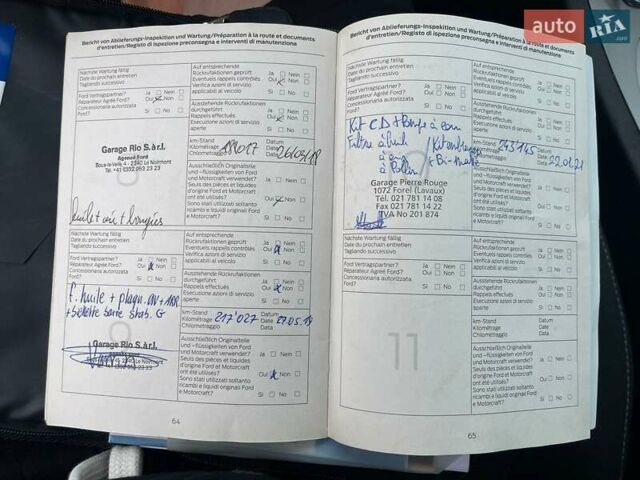 Bericht von Ablieferungs-Inspektion und Wartung/Préparation à la route et documents
d'entretien/Registo di ispezione preconsegna e interventi di manutenzione
Nächste Wartung fällig
Date du prochain entretien
Tagliando successivo
Auf entsprechende
Rückrufaktionen geprüft
Eventuels rappels contrôlés
Verifica azioni di servizio
applicabili al veicolo
Ja Nein
Oui Non
Si No
Ford Vertragspartner?
Réparateur Agréé Ford?
Concessionaria autorizzata
Ford?
Ja Nein
Oui Non
Si No
Ausstehende Rückrufaktionen
durchgeführt
Rappels effectués
Esecuzione azioni di servizio
aperte
Ja Nein
Oui Non
Si No
Garage Rio S.à.r.l.
Agence Ford
2340 Le Noirmont
km-Stand
Kilométrage
Chilometraggio
Datum
Date
Data
26/03/18
Ausschließlich Originalteile
und -flüssigkeiten von Ford
und Motorcraft verwendet?
Seuls des pièces et liquides
d'origine Ford et Motorcraft
ont été utilisés?
Sono stati utilizzati soltanto
ricambi e liquidi originali Ford
e Motorcraft?
Ja Nein
Oui Non
Si No
huile + air + bougies
Nächste Wartung fällig
Date du prochain entretien
Tagliando successivo
Auf entsprechende
Rückrufaktionen geprüft
Eventuels rappels contrôlés
Verifica azioni di servizio
applicabili al veicolo
Ja Nein
Oui Non
Si No
Ford Vertragspartner?
Réparateur Agréé Ford?
Concessionaria autorizzata
Ford?
Ja Nein
Oui Non
Si No
Ausstehende Rückrufaktionen
durchgeführt
Rappels effectués
Esecuzione azioni di servizio
aperte
Ja Nein
Oui Non
Si No
f. huile + plaqu. AV + ARR
stab. G
km-Stand
Kilométrage 217'027
Chilometraggio
Datum
Date 27.05.19
Data
Garage Rio S.à.r.l.
Ausschließlich Originalteile
und -flüssigkeiten von Ford
und Motorcraft verwendet?
Seuls des pièces et liquides
d'origine Ford et Motorcraft
ont été utilisés?
Sono stati utilizzati soltanto
ricambi e liquidi originali Ford
e Motorcraft?
Ja Nein
Oui Non
Si No
64
Bericht von Ablieferungs-Inspektion und Wartung/Préparation à la route et documents
d'entretien/Registo di ispezione preconsegna e interventi di manutenzione
Nächste Wartung fällig
Date du prochain entretien
Tagliando successivo
Auf entsprechende
Rückrufaktionen geprüft
Eventuels rappels contrôlés
Verifica azioni di servizio
applicabili al veicolo
Ja Nein
Oui Non
Si No
Ford Vertragspartner?
Réparateur Agréé Ford?
Concessionaria autorizzata
Ford?
Ja Nein
Oui Non
Si No
Ausstehende Rückrufaktionen
durchgeführt
Rappels effectués
Esecuzione azioni di servizio
aperte
Ja Nein
Oui Non
Si No
Kit CD + Pompe à eau
Filtre à huile
à air
à Pollen
243'145
22.01.21
Garage Pierre Rouge
1072 Forel (Lavaux)
Tél. 021 781 14 08
Fax 021 781 14 22
TVA No 201 874
Ausschließlich Originalteile
und -flüssigkeiten von Ford
und Motorcraft verwendet?
Seuls des pièces et liquides
d'origine Ford et Motorcraft
ont été utilisés?
Sono stati utilizzati soltanto
ricambi e liquidi originali Ford
e Motorcraft?
Ja Nein
Oui Non
Si No
Nächste Wartung fällig
Date du prochain entretien
Tagliando successivo
Auf entsprechende
Rückrufaktionen geprüft
Eventuels rappels contrôlés
Verifica azioni di servizio
applicabili al veicolo
Ja Nein
Oui Non
Si No
Ford Vertragspartner?
Réparateur Agréé Ford?
Concessionaria autorizzata
Ford?
Ja Nein
Oui Non
Si No
Ausstehende Rückrufaktionen
durchgeführt
Rappels effectués
Esecuzione azioni di servizio
aperte
Ja Nein
Oui Non
Si No
11
km-Stand
Kilométrage
Chilometraggio
Datum
Date
Data
Ausschließlich Originalteile
und -flüssigkeiten von Ford
und Motorcraft verwendet?
Seuls des pièces et liquides
d'origine Ford et Motorcraft
ont été utilisés?
Sono stati utilizzati soltanto
ricambi e liquidi originali Ford
e Motorcraft?
Ja Nein
Oui Non
Si No
65
auto RIA .com